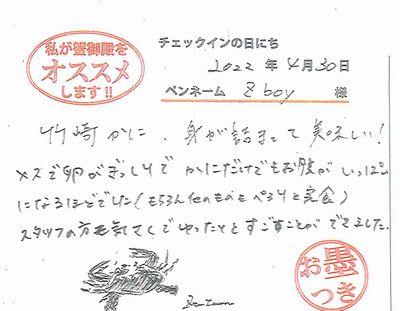 私が蟹御殿を
オススメ
します!!
チェックインの日にち
2022 年 4月 30日
ペンネーム Z boy 様
竹崎かに、身が詰まって美味しい!
メスで卵がぎっしりで かにだけでもお腹がいっぱい
になるほどでした(もちろん他のものもペろりと完食)
スタッフの方も気さくでゆったりとすごすことができました。
お墨
つき